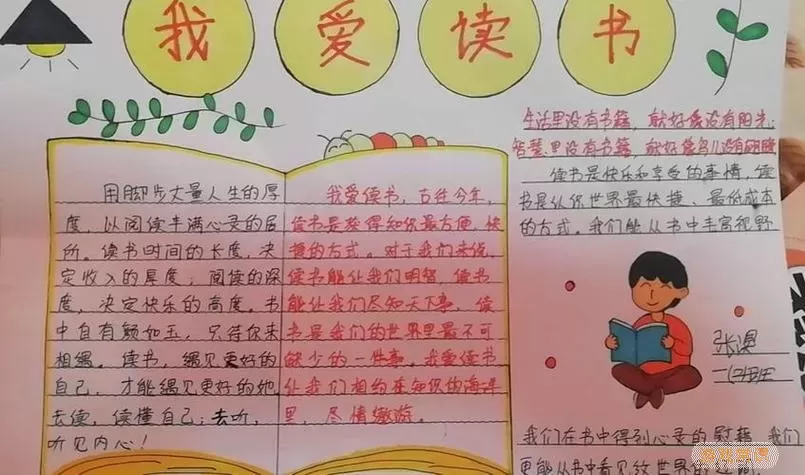 我爱读书
用脚步丈量人生的厚
度，以阅读丰满心灵的居
所。读书时间的长度，决
定收入的厚度；阅读的深
度，决定快乐的高度。书
中自有颜如玉，只待你来
相遇。读书，遇见更好的
自己，才能遇见更好的她
去读，读懂自己；去听，
听见内心！
我爱读书，古往今年，
读书是获得知识最方便，快
捷的方式。对于我们来说，
读书能让我们明智，读书
能让我们尽知天下事，读
书是我们的世界里最不可
缺少的一件事。我爱读书
让我们相约在知识的海洋
里，尽情遨游。
生活里没有书籍，就好像没有阳光；
智慧里没有书籍，就好像鸟儿没有翅膀
读书是快乐和享受的事情，读
书是认识世界最快捷、最低成本
的方式。我们能从书中丰富视野
张
班
我们在书中得到心灵的慰籍，我们
更能从书中看见纷世界的